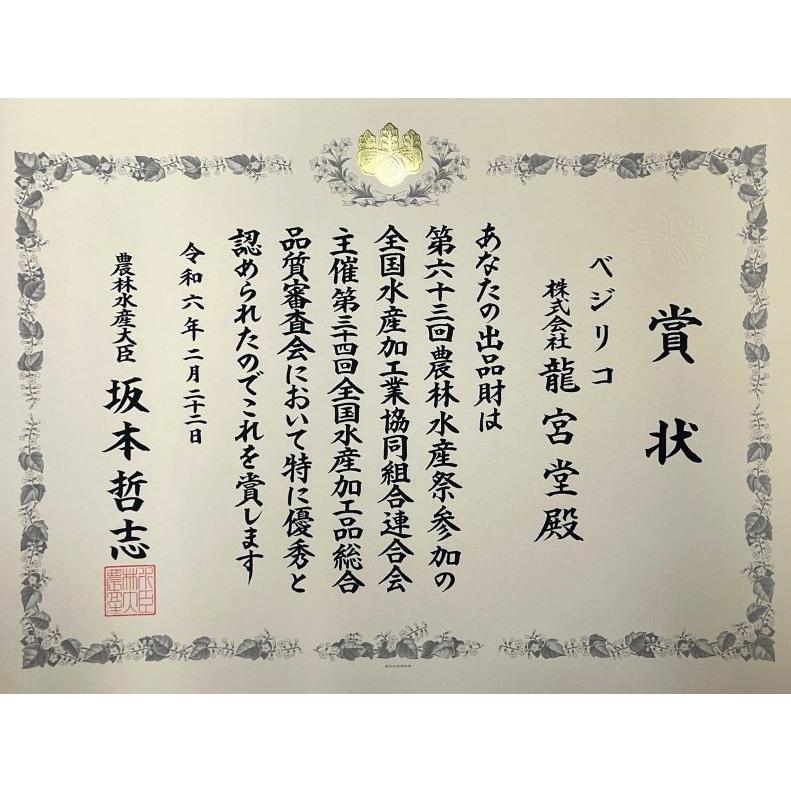 賞状
ベジリコ
株式会社 龍宮堂殿
あなたの出品財は
第六十三回農林水産祭参加の
全国水産加工業協同組合連合会
主催第三十四回全国水産加工品総合
品質審査会において特に優秀と
認められたのでこれを賞します
令和六年二月二十二日
農林水産大臣 坂本哲志